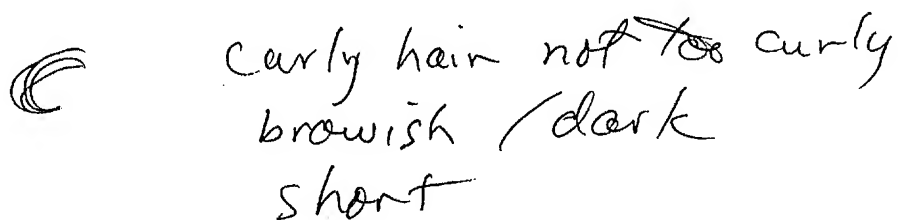 C curly hair not too curly
browish / dark
short